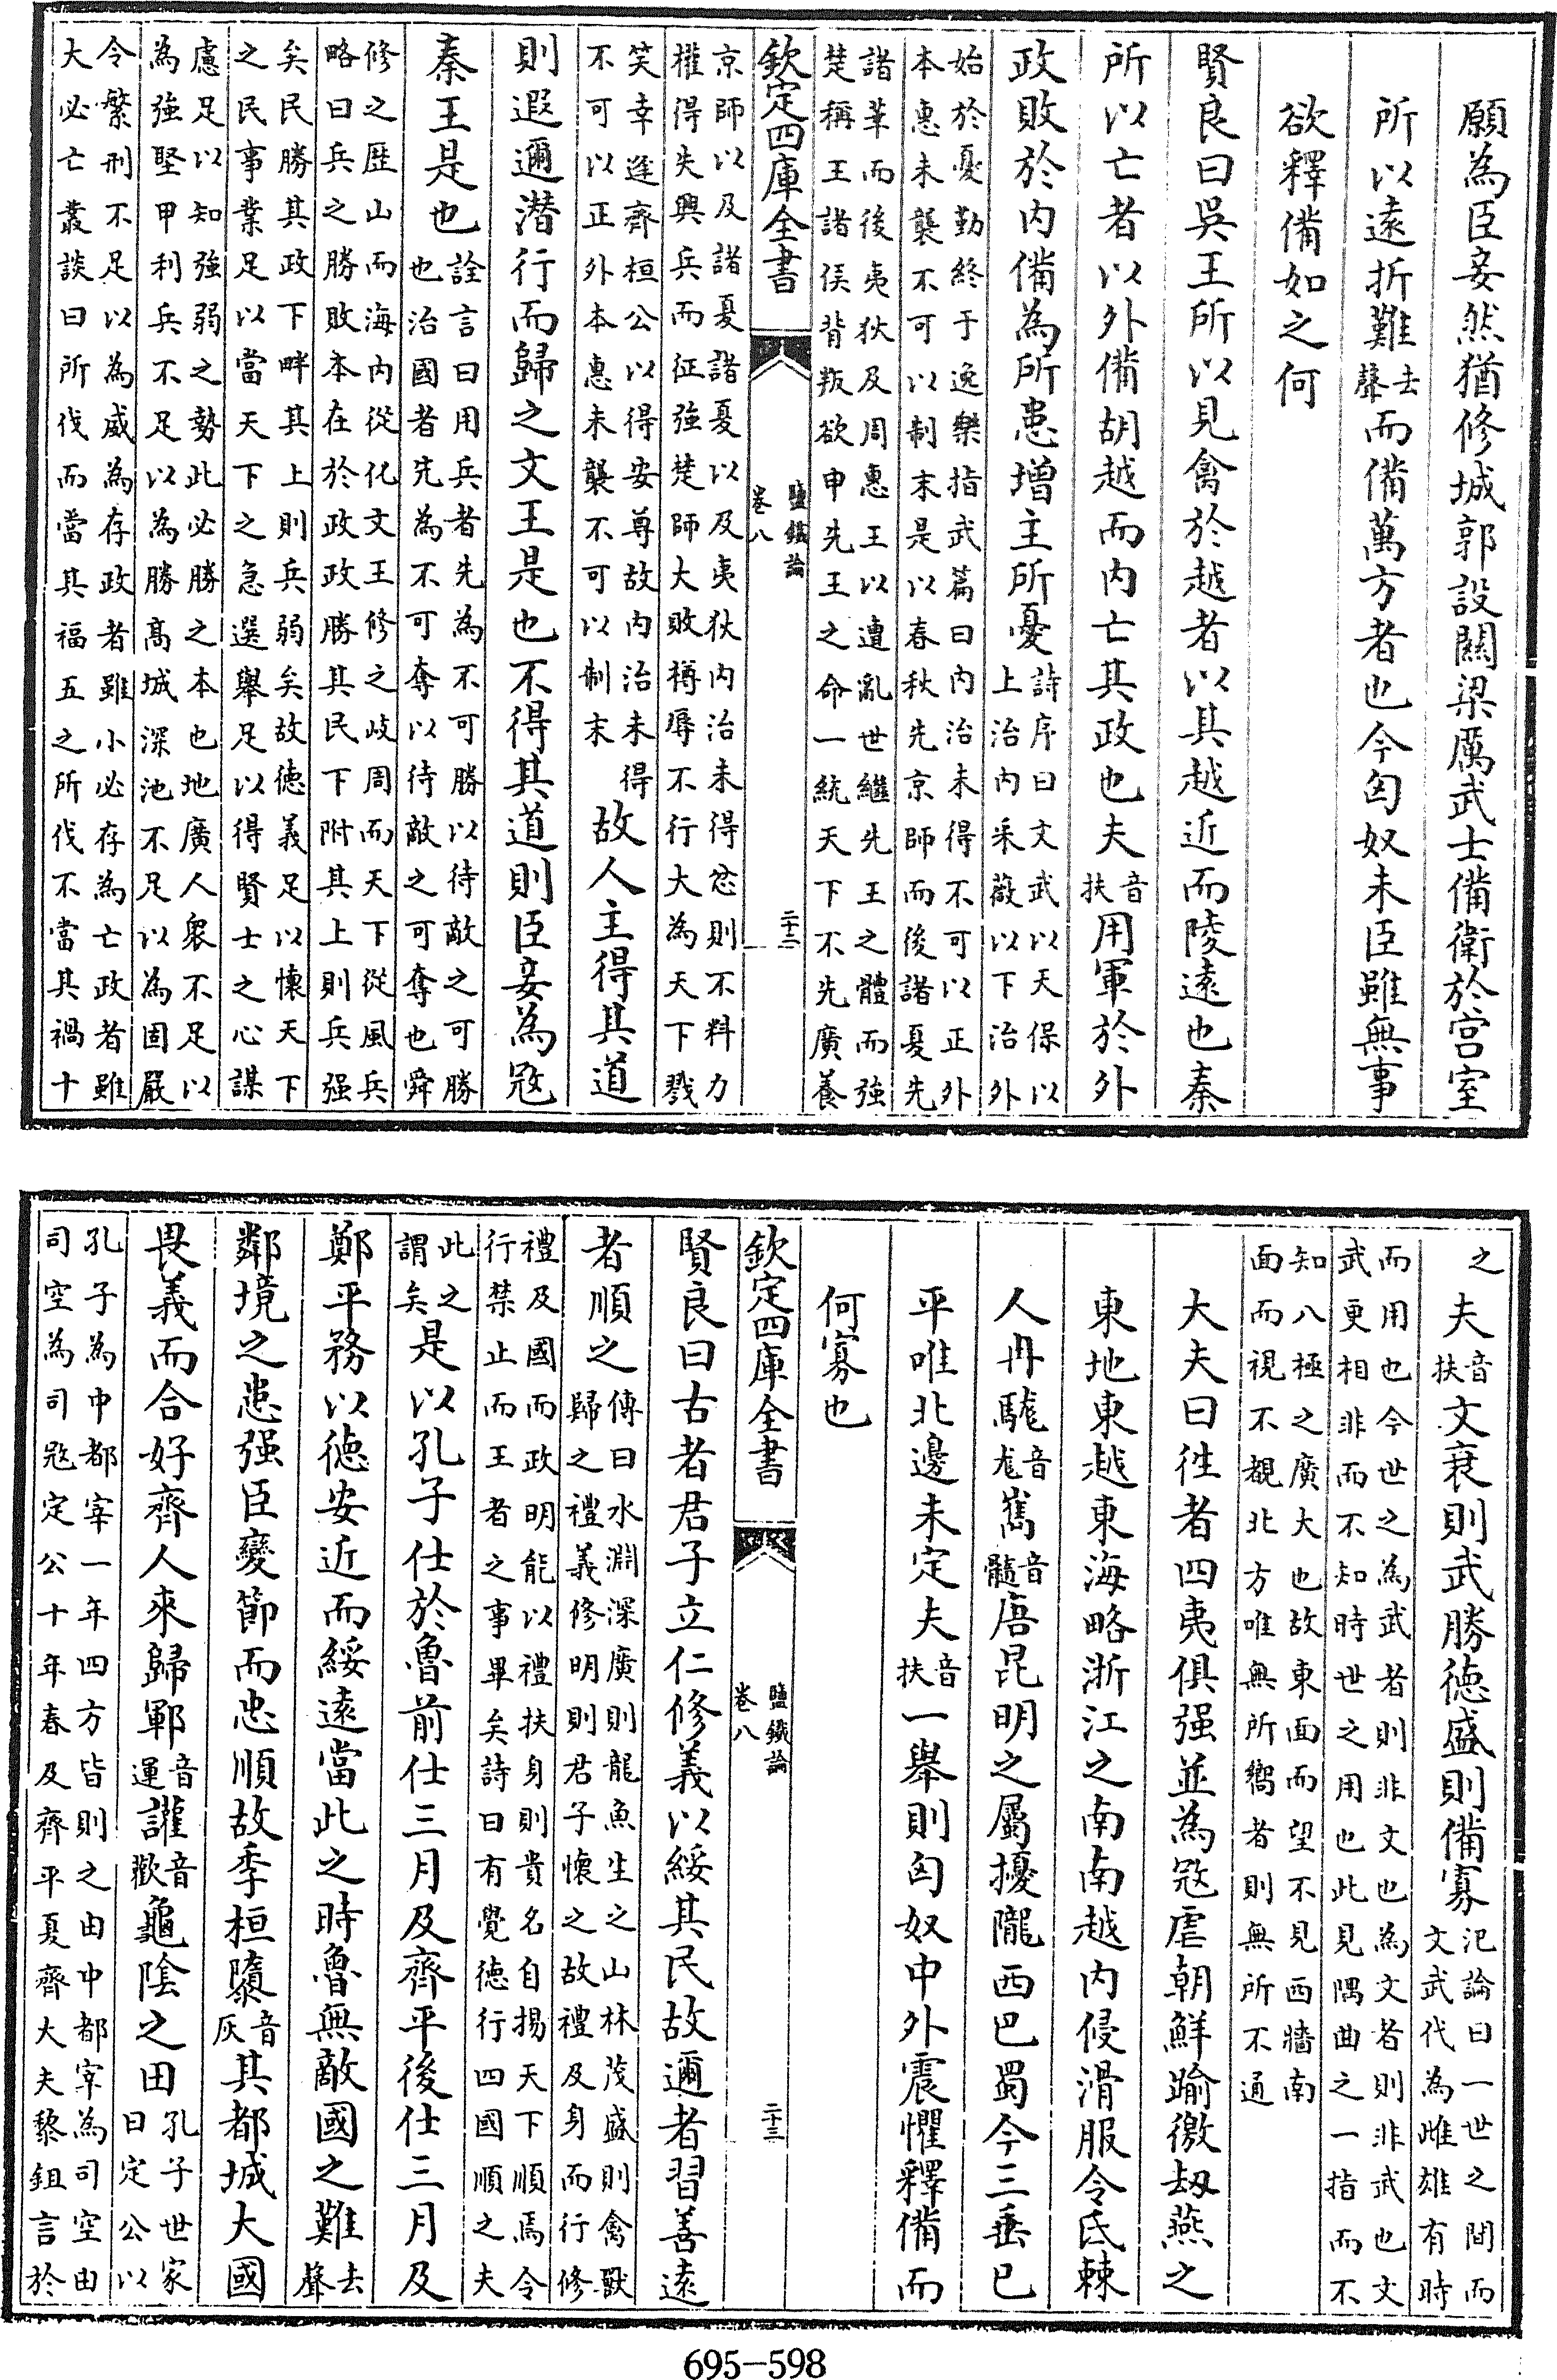 願為臣妾然猶修城郭設關梁厲武士備衛於宫室
所以遠折難去聲而備萬方者也今匈奴未臣雖無事
欲釋備如之何
賢良曰吳王所以見禽於越者以其越近而陵遠也秦
所以亡者以外備胡越而内亡其政也夫音扶用軍於外
政敗於内備為所患增主所憂詩序曰文武以天保以上治内采薇以下治外
始於憂勤終于逸樂指武篇曰内治未得不可以正外
本惠未襲不可以制末是以春秋先京師而後諸夏先
諸華而後夷狄及周惠王以遭亂世繼先王之體而強
楚稱王諸侯背叛欲申先王之命一統天下不先廣養
欽定四庫全書
鹽鐵論
卷八
二十二
京師以及諸夏諸夏以及夷狄内治未得忿則不料力
權得失興兵而征強楚師大敗撙辱不行大為天下戮
笑幸逢齊桓公以得安尊故内治未得
不可以正外本惠未襲不可以制末故人主得其道
則遐邇潛行而歸之文王是也不得其道則臣妾為寇
秦王是也詮言曰用兵者先為不可勝以待敵之可勝也治國者先為不可奪以待敵之可奪也舜
修之歷山而海内從化文王修之岐周而天下從風兵
略曰兵之勝敗本在於政政勝其民下附其上則兵强
矣民勝其政下畔其上則兵弱矣故徳義足以懷天下
之民事業足以當天下之急選舉足以得賢士之心謀
慮足以知強弱之勢此必勝之本也地廣人衆不足以
為強堅甲利兵不足以為勝髙城深池不足以為固嚴
令繁刑不足以為威為存政者雖小必存為亡政者雖
大必亡叢談曰所伐而當其福五之所伐不當其禍十
之夫音扶文衰則武勝徳盛則備寡氾論曰一世之間而文武代為雌雄有時
而用也今世之為武者則非文也為文者則非武也文
武更相非而不知時世之用也此見隅曲之一指而不
知八極之廣大也故東面而望不見西牆南
面而視不覩北方唯無所嚮者則無所不通
大夫曰徃者四夷俱强並為寇虐朝鮮踰徼刼燕之
東地東越東海略浙江之南南越内侵滑服令氐棘
人冉駹音尨嶲音髓唐昆明之屬擾隴西巴蜀今三垂已
平唯北邊未定夫音扶一舉則匈奴中外震懼釋備而
何寡也
欽定四庫全書
鹽鐵論
卷八
二十三
賢良曰古者君子立仁修義以綏其民故邇者習善遠
者順之傳曰水淵深廣則龍魚生之山林茂盛則禽獸歸之禮義修明則君子懷之故禮及身而行修
禮及國而政明能以禮扶身則貴名自揚天下順焉令
行禁止而王者之事畢矣詩曰有覺徳行四國順之夫
此之謂矣是以孔子仕於魯前仕三月及齊平後仕三月及
鄭平務以徳安近而綏遠當此之時魯無敵國之難去聲
鄰境之患强臣變節而忠順故季桓隳音灰其都城大國
畏義而合好齊人來歸鄆音運讙音歡龜陰之田孔子世家曰定公以
孔子為中都宰一年四方皆則之由中都宰為司空由
司空為司寇定公十年春及齊平夏齊大夫黎鉏言於
695-598